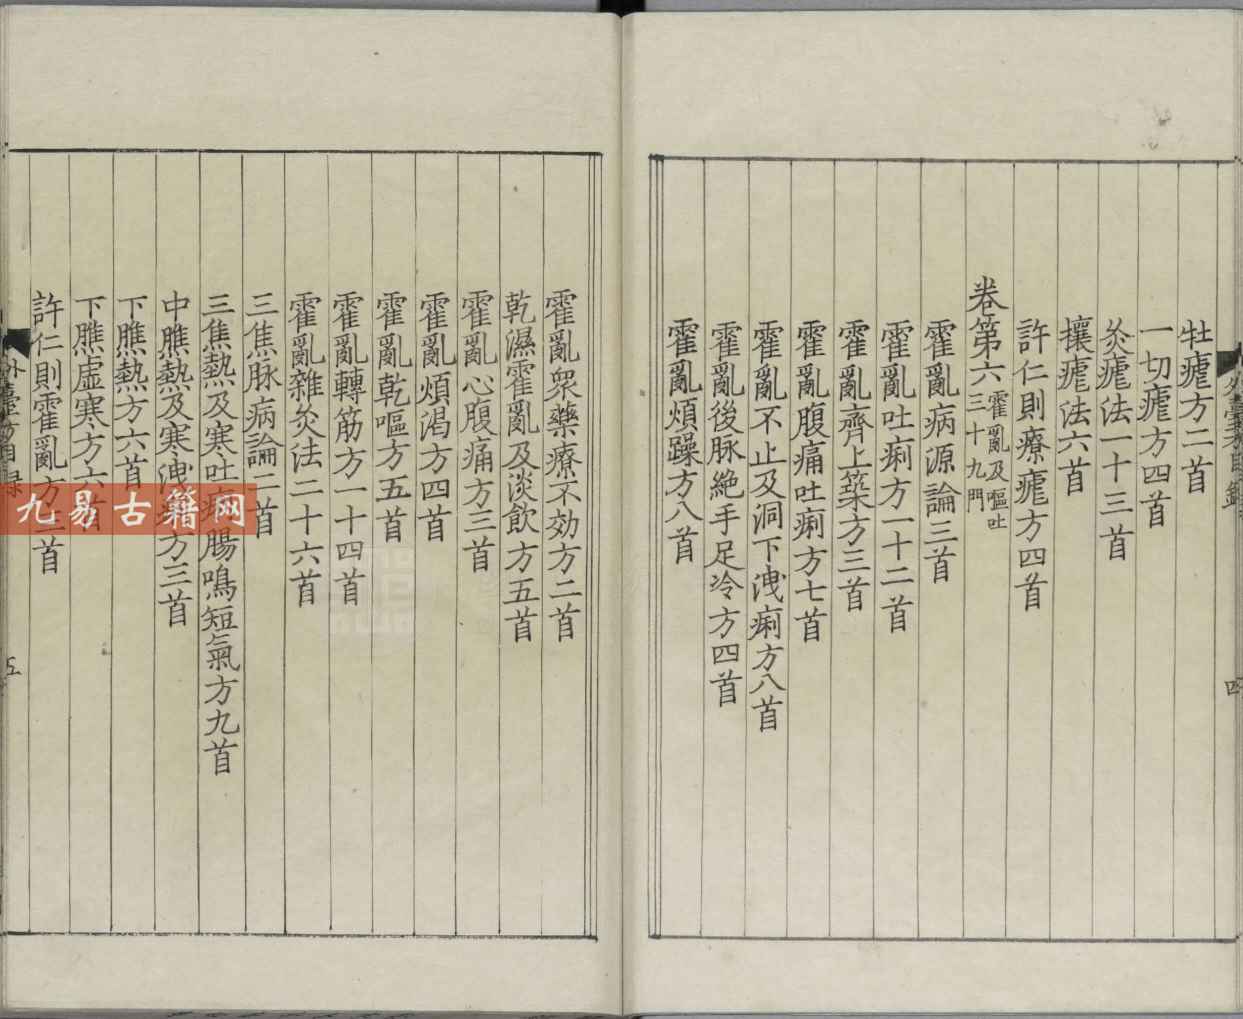 牡瘧方二首
一切瘧方四首
灸瘧法一十三首
攘瘧法六首
許仁則療瘧方四首
卷第六霍亂及嘔吐三十九門
霍亂病源論三首
霍亂吐痢方一十二首
霍亂齊上築方三首
霍亂腹痛吐痢方七首
霍亂不止及洞下洩痢方八首
霍亂後脉絶手足冷方四首
霍亂煩躁方八首
四
霍亂衆藥療不効方二首
乾濕霍亂及淡飲方五首
霍亂心腹痛方三首
霍亂煩渴方四首
霍亂乾嘔方五首
霍亂轉筋方一十四首
霍亂雜灸法二十六首
三焦脉病論二首
三焦熱及寒吐痢腸鳴短氣方九首
中膲熱及寒洩方三首
下膲熱方六首
下膲虛寒方六首
許仁則霍亂方首
五
九易古籍网